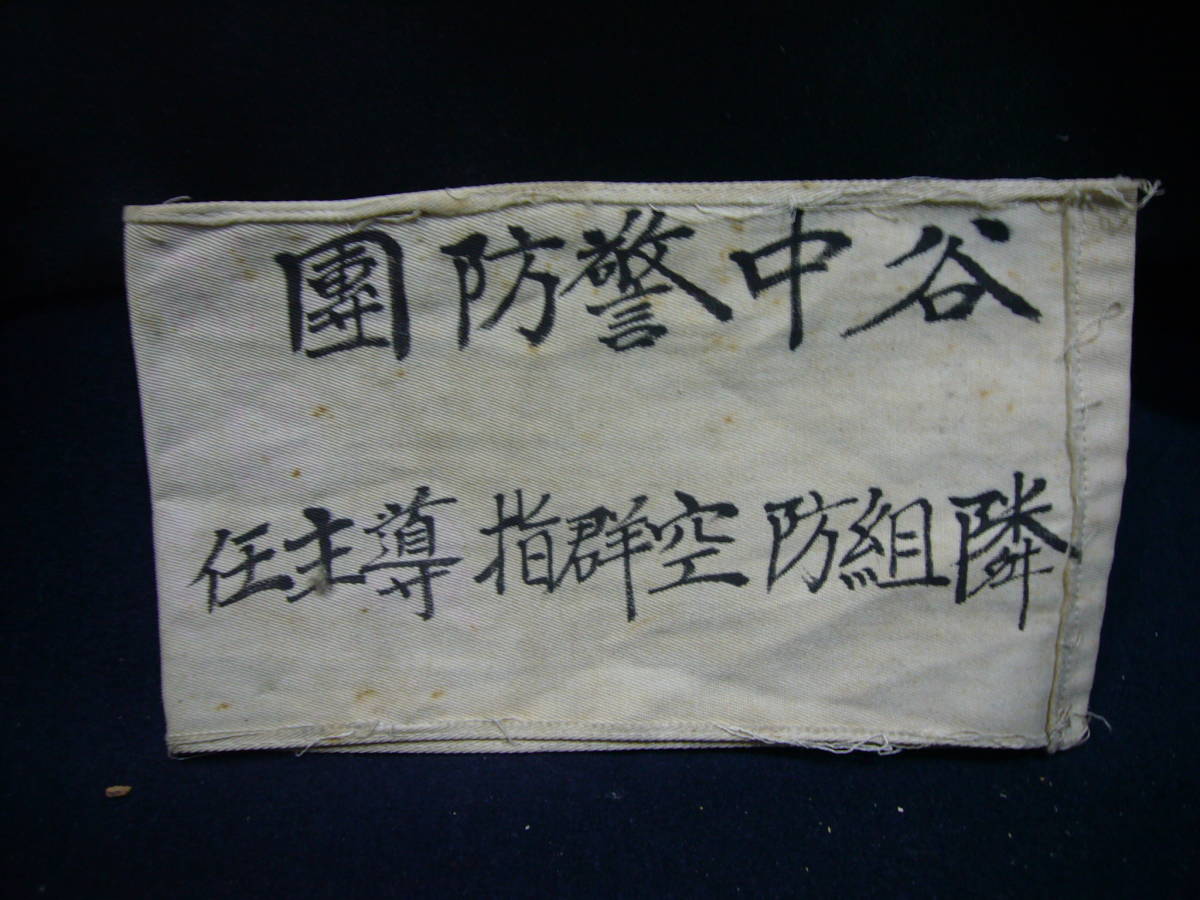 谷中警防團
隣組防空群指導主任